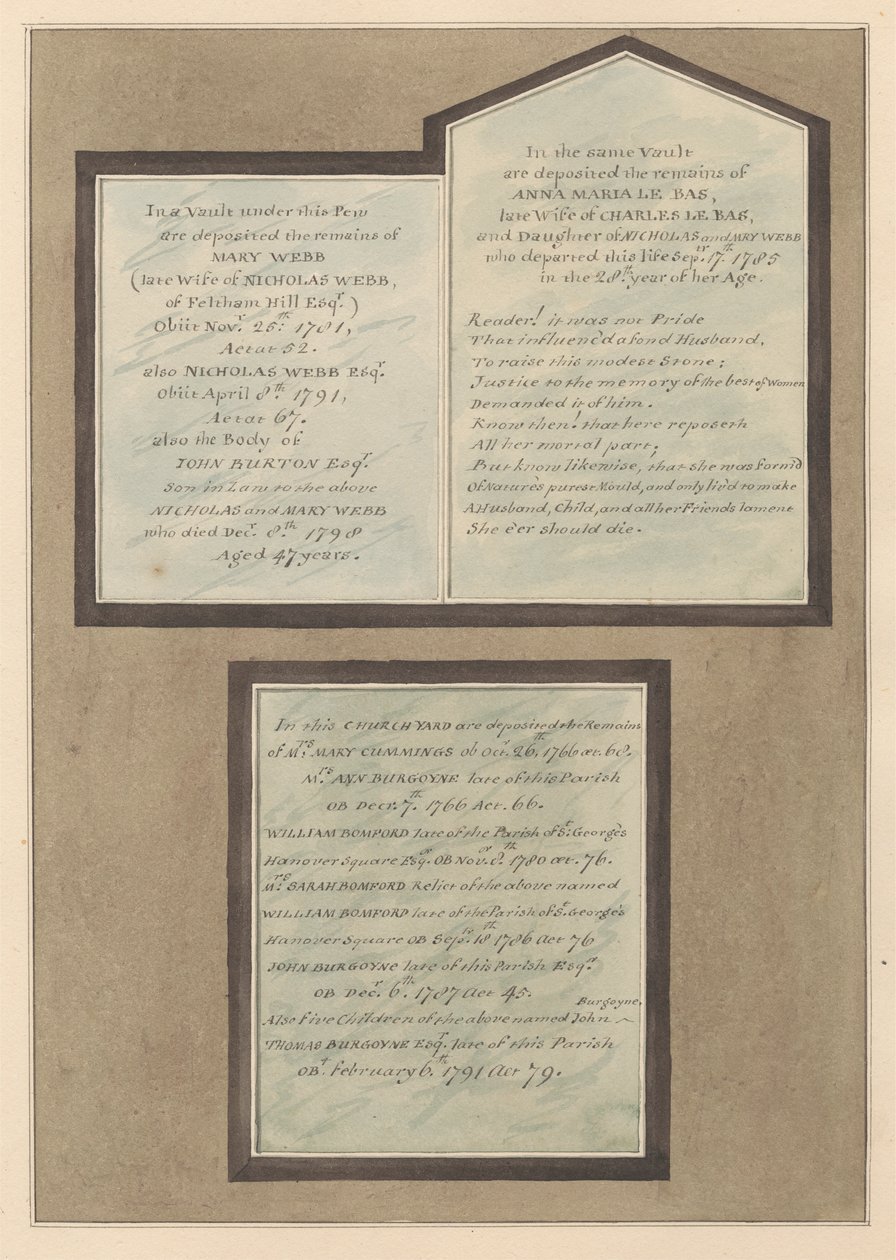 In a Vault under this Pew
are deposited the remains of
MARY WEBB
(late Wife of NICHOLAS WEBB,
of Feltham Hill Esqr.)
Obiit Novr. 25th. 1781,
Aetat 52.
also NICHOLAS WEBB Esqr.
Obiit April 8th. 1791,
Aetat 67.
also the Body of
JOHN BURTON Esqr.
Son in Law to the above
NICHOLAS and MARY WEBB
who died Decr. 8th. 1798
Aged 47 years.
In the same Vault
are deposited the remains of
ANNA MARIA LE BAS,
late Wife of CHARLES LE BAS,
and Daughter of NICHOLAS and MRY WEBB
who departed this life Septr. 17th. 1785
in the 28th. year of her Age.
Reader! it was not Pride
That influenc'd a fond Husband,
To raise this modest Stone;
Justice to the memory of the best of Women
Demanded it of him.
Know then! that here reposeth
All her mortal part;
But know likewise, that she was form'd
Of Nature's purest Mould, and only liv'd to make
A Husband, Child, and all her Friends lament
She e'er should die.
In this CHURCH YARD are deposited the Remains
of Mrs. MARY CUMMINGS ob Octr. 26th, 1766 æt. 68.
Mrs. ANN BURGOYNE late of this Parish
OB Decr. 7th. 1766 Aet. 66.
WILLIAM BOMFORD late of the Parish of St. George's
Hanover Square Esqr. OB Novr. 8th. 1780 æt. 76.
Mrs. SARAH BOMFORD Relict of the above named
WILLIAM BOMFORD late of the Parish of St. George's
Hanover Square OB Septr. 18th 1786 Aet 76
JOHN BURGOYNE late of this Parish Esqr.
OB Decr. 6th. 1787 Aet 45.
Also five Children of the above named John Burgoyne,
THOMAS BURGOYNE Esqr. late of this Parish
OBt. february 6th. 1791 Aet 79.